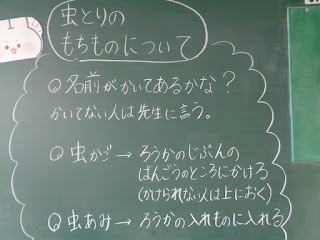 虫とりの
もちものについて
Q 名前がかいてあるかな?
かいてない人は先生に言う。
Q 虫かご→ろうかのじぶんの
ばんごうのところにかける
(かけられない人は上におく)
Q 虫あみ→ろうかの入れものに入れる